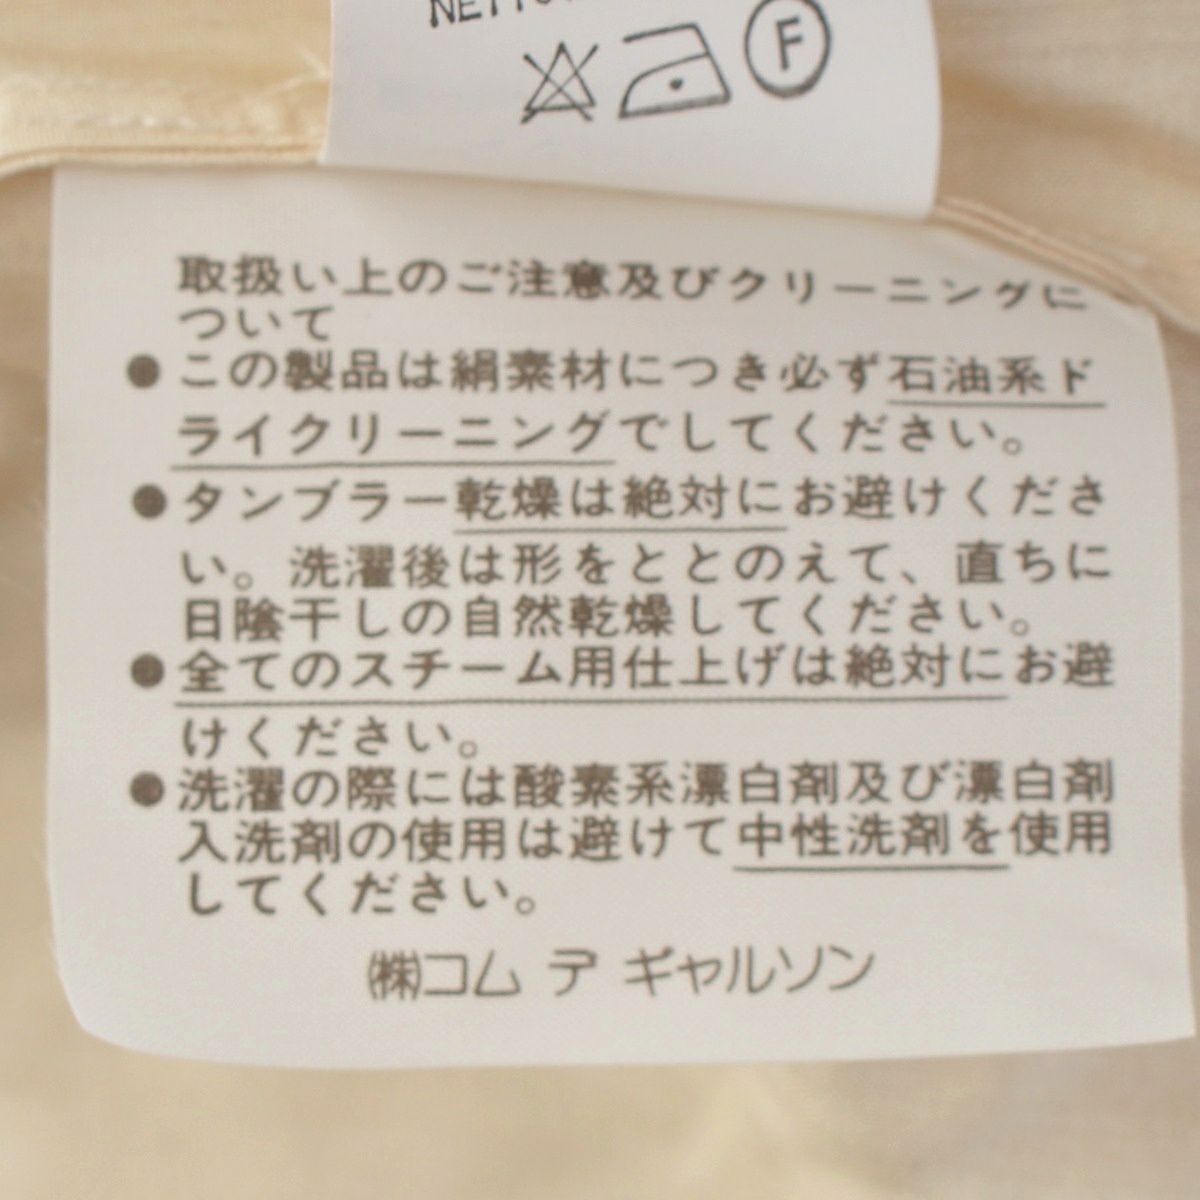 F
取扱い上のご注意及びクリーニングに
ついて
●この製品は絹素材につき必ず石油系ド
ライクリーニングでしてください。
●タンブラー乾燥は絶対にお避けくださ
い。洗濯後は形をととのえて、直ちに
日陰干しの自然乾燥してください。
●全てのスチーム用仕上げは絶対にお避
けください。
●洗濯の際には酸素系漂白剤及び漂白剤
入洗剤の使用は避けて中性洗剤を使用
してください。
㈱コム デ ギャルソン